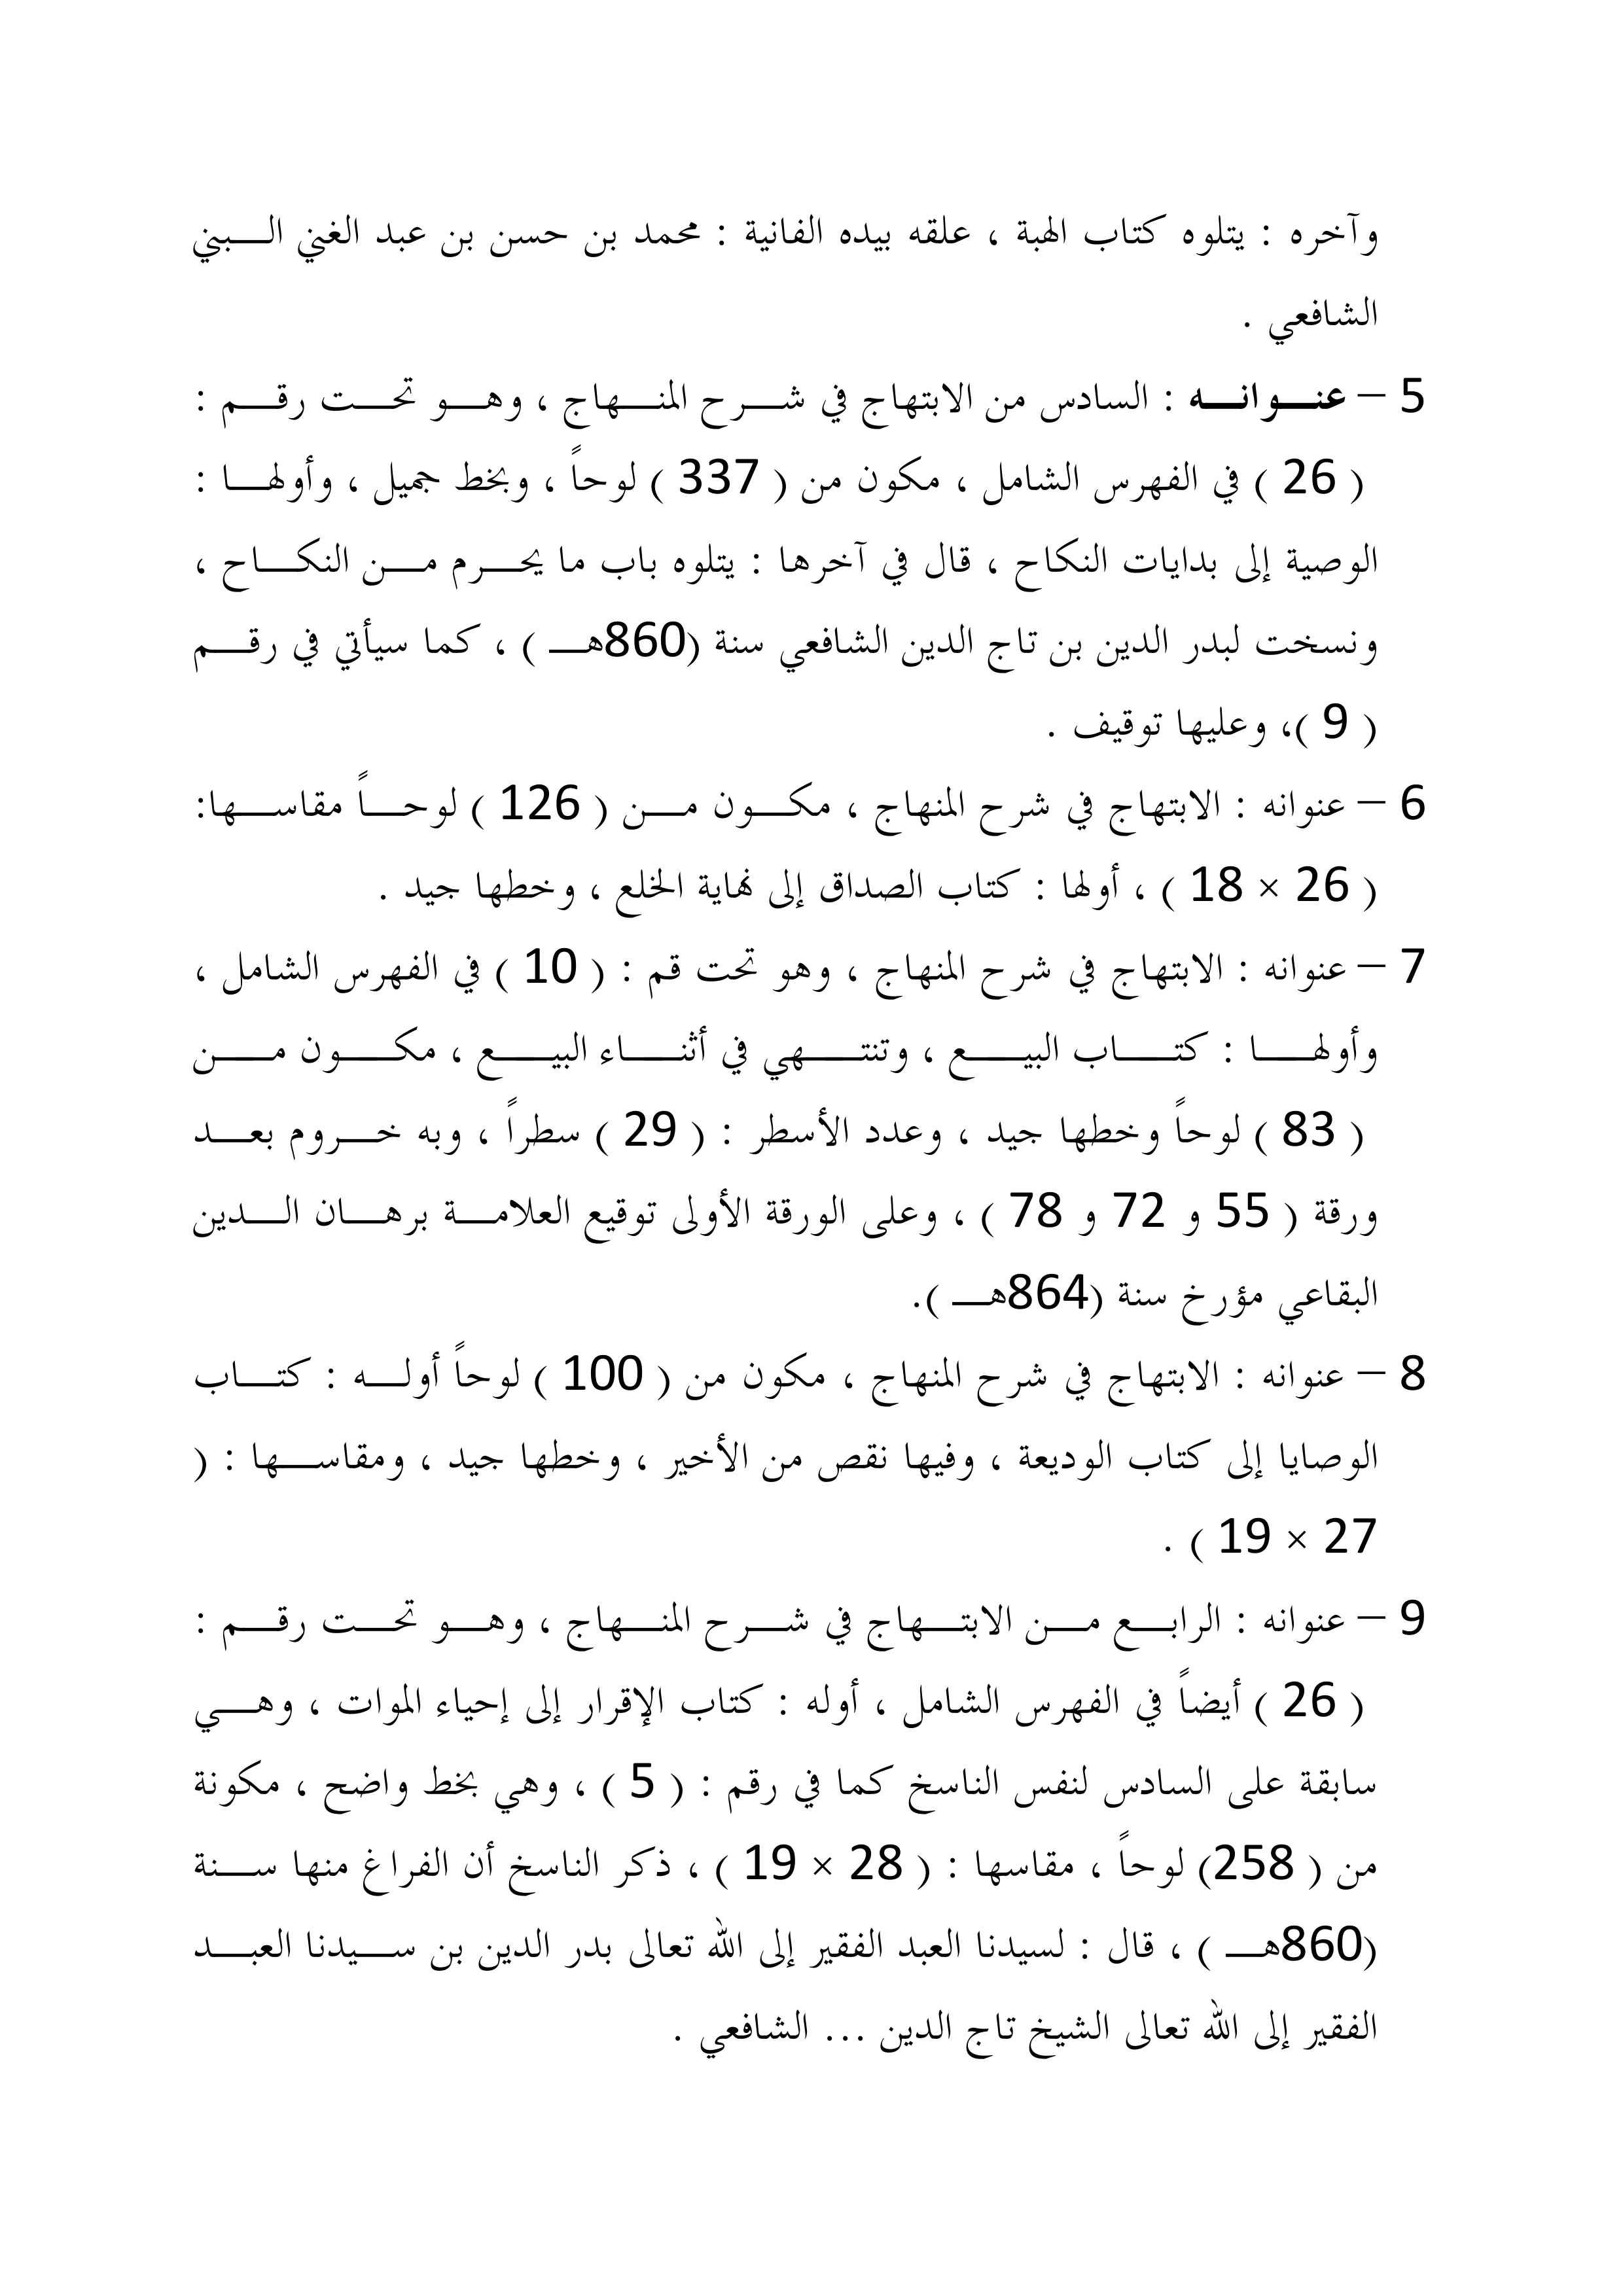 وآخره : يتلوه كتاب الهبة ، علقه بيده الفانية : محمد بن حسن بن عبد الغني البني
الشافعي .
5 – عنوانه : السادس من الابتهاج في شرح المنهاج ، وهو تحت رقم :
( 26 ) في الفهرس الشامل ، مكون من ( 337 ) لوحاً ، وبخط جميل ، وأولها :
الوصية إلى بدايات النكاح ، قال في آخرها : يتلوه باب ما يحرم من النكاح ،
ونسخت لبدر الدين بن تاج الدين الشافعي سنة (860هـ ) ، كما سيأتي في رقم
( 9 )، وعليها توقيف .
6 – عنوانه : الابتهاج في شرح المنهاج ، مكون من ( 126 ) لوحاً مقاسها:
( 26 × 18 ) ، أولها : كتاب الصداق إلى نهاية الخلع ، وخطها جيد .
7 – عنوانه : الابتهاج في شرح المنهاج ، وهو تحت قم : ( 10 ) في الفهرس الشامل ،
وأولها : كتاب البيع ، وتنتهي في أثناء البيع ، مكون من
( 83 ) لوحاً وخطها جيد ، وعدد الأسطر : ( 29 ) سطراً ، وبه خروم بعد
ورقة ( 55 و 72 و 78 ) ، وعلى الورقة الأولى توقيع العلامة برهان الدين
البقاعي مؤرخ سنة (864هـ ).
8 – عنوانه : الابتهاج في شرح المنهاج ، مكون من ( 100 ) لوحاً أوله : كتاب
الوصايا إلى كتاب الوديعة ، وفيها نقص من الأخير ، وخطها جيد ، ومقاسها : (
27 × 19 ) .
9 – عنوانه : الرابع من الابتهاج في شرح المنهاج ، وهو تحت رقم :
( 26 ) أيضاً في الفهرس الشامل ، أوله : كتاب الإقرار إلى إحياء الموات ، وهي
سابقة على السادس لنفس الناسخ كما في رقم : ( 5 ) ، وهي بخط واضح ، مكونة
من ( 258) لوحاً ، مقاسها : ( 28 × 19 ) ، ذكر الناسخ أن الفراغ منها سنة
(860هـ ) ، قال : لسيدنا العبد الفقير إلى الله تعالى بدر الدين بن سيدنا العبد
الفقير إلى الله تعالى الشيخ تاج الدين ... الشافعي .